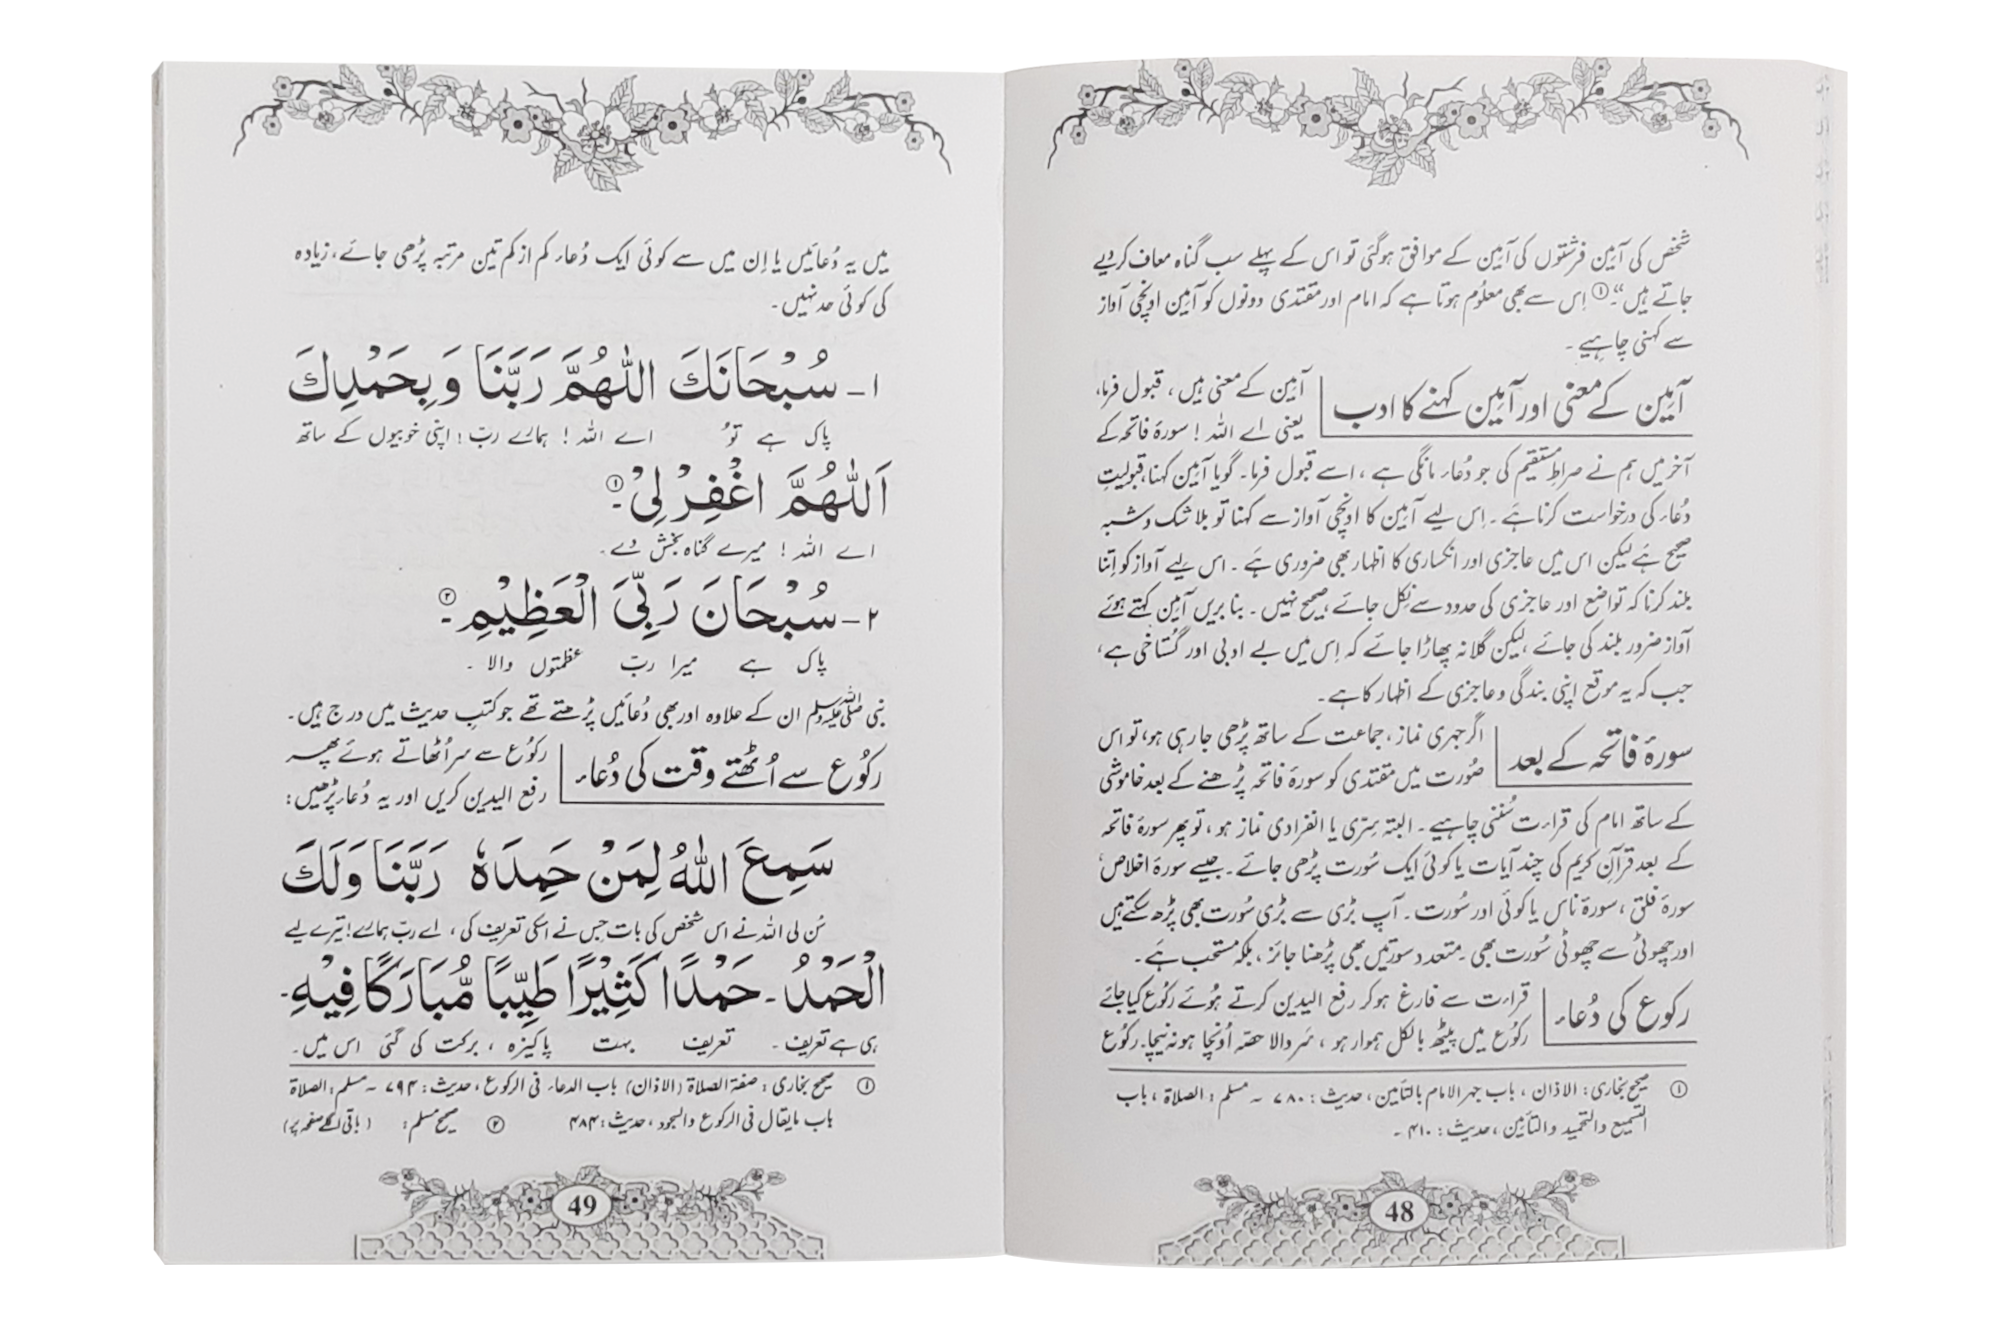 شخص کی آمین فرشتوں کی آمین کے موافق ہوگئی تو اس کے پہلے سب گناہ معاف کر دیے
جاتے ہیں“۔① اِس سے بھی معلُوم ہوتا ہے کہ امام اور مقتدی دونوں کو آمین اونچی آواز
سے کہنی چاہیے ۔
آمین کے معنی اور آمین کہنے کا ادب
آمین کے معنی ہیں ، قبول فرما،
یعنی اے اللہ ! سورۂ فاتحہ کے
آخر میں ہم نے صراطِ مستقیم کی جو دُعاء مانگی ہے ، اسے قبول فرما۔ گویا آمین کہنا، قبولیتِ
دُعاء کی درخواست کرنا ہے ۔ اِس لیے آمین کا اونچی آواز سے کہنا تو بلا شک و شبہ
صحیح ہے لیکن اس میں عاجزی اور انکساری کا اظہار بھی ضروری ہے ۔ اس لیے آواز کو اِتنا
بلند کرنا کہ تواضع اور عاجزی کی حدود سے نِکل جائے ، صحیح نہیں ۔ بنا بریں آمین کہتے ہوئے
آواز ضرور بلند کی جائے ، لیکن گلا نہ پھاڑا جائے کہ اِس میں بے ادبی اور گستاخی ہے ،
جب کہ یہ موقع اپنی بندگی و عاجزی کے اظہار کا ہے ۔
سورۂ فاتحہ کے بعد
اگر جہری نماز ، جماعت کے ساتھ پڑھی جا رہی ہو، تو اس
صُورت میں مقتدی کو سورۂ فاتحہ پڑھنے کے بعد خاموشی
کے ساتھ امام کی قراءت سُننی چاہیے ۔ البتہ سِرّی یا انفرادی نماز ہو ، تو پھر سورۂ فاتحہ
کے بعد قرآنِ کریم کی چند آیات یا کوئی ایک سُورت پڑھی جائے ۔ جیسے سورۂ اخلاص،
سورۂ فلق ، سورۂ ناس یا کوئی اور سُورت ۔ آپ بڑی سے بڑی سُورت بھی پڑھ سکتے ہیں
اور چھوٹی سے چھوٹی سُورت بھی ۔ متعدد سورتیں بھی پڑھنا جائز ، بلکہ مستحب ہے ۔
رکوع کی دُعاء
قراءت سے فارغ ہو کر رفع الیدین کرتے ہُوئے رکُوع کیا جائے
رکُوع میں پیٹھ بالکل ہموار ہو ، سَر والا حصّہ اُونچا ہو نہ نیچا۔ رکُوع
① صحیح بخاری: الاذان ، باب جہر الامام بالتأمین، حدیث : ۷۸۰ ۔ مسلم : الصلاۃ ، باب
التسمیع والتحمید والتأمین ، حدیث : ۴۱۰ ۔
48
میں یہ دُعائیں یا اِن میں سے کوئی ایک دُعاء کم از کم تین مرتبہ پڑھی جائے ، زیادہ
کی کوئی حد نہیں ۔
۱۔ سُبْحَانَكَ اللّٰهُمَّ رَبَّنَا وَبِحَمْدِكَ
پاک ہے تُو اے اللہ ! ہمارے ربّ ! اپنی خوبیوں کے ساتھ
اَللّٰهُمَّ اغْفِرْ لِيْ۔①
اے اللہ ! میرے گناہ بخش دے ۔
۲۔ سُبْحَانَ رَبِّيَ الْعَظِيْمِ۔②
پاک ہے میرا ربّ عظمتوں والا ۔
نبی صلی اللہ علیہ وسلم ان کے علاوہ اور بھی دُعائیں پڑھتے تھے جو کتبِ حدیث میں درج ہیں ۔
رکُوع سے اُٹھتے وقت کی دُعاء
رکُوع سے سر اُٹھاتے ہوئے پھر
رفع الیدین کریں اور یہ دُعاء پڑھیں :
سَمِعَ اللّٰهُ لِمَنْ حَمِدَهٗ رَبَّنَا وَلَكَ
سُن لی اللہ نے اس شخص کی بات جس نے اسکی تعریف کی ، اے ربّ ہمارے! تیرے لیے
الْحَمْدُ۔ حَمْدًا كَثِيْرًا طَيِّبًا مُّبَارَكًا فِيْهِ۔
ہی ہے تعریف ۔ تعریف بہت پاکیزہ ، برکت کی گئی اس میں ۔
① صحیح بخاری : صفۃ الصلاۃ (الاذان) باب الدعاء فی الرکوع ، حدیث : ۷۹۴ ۔ مسلم : الصلاۃ
باب مایقال فی الرکوع والسجود ، حدیث : ۴۸۴ ② صحیح مسلم : (باقی اگلے صفحہ پر)
49